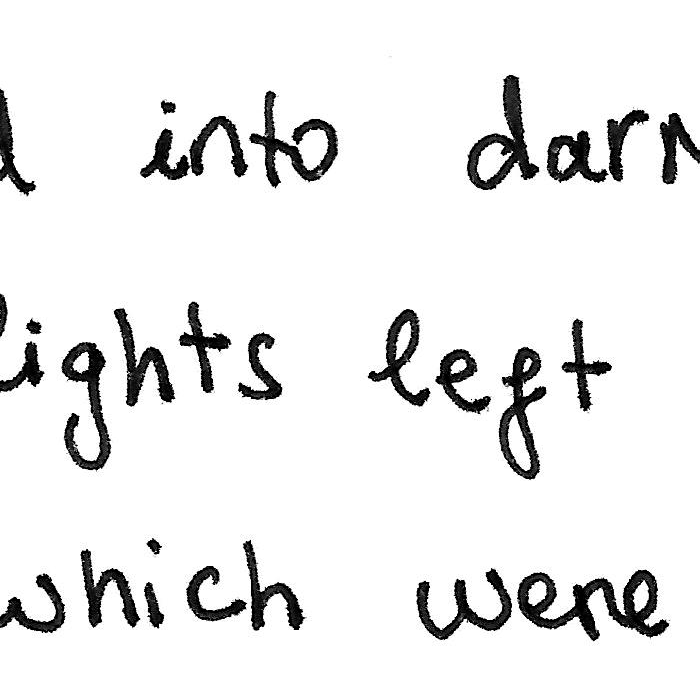 into
lights left
which were